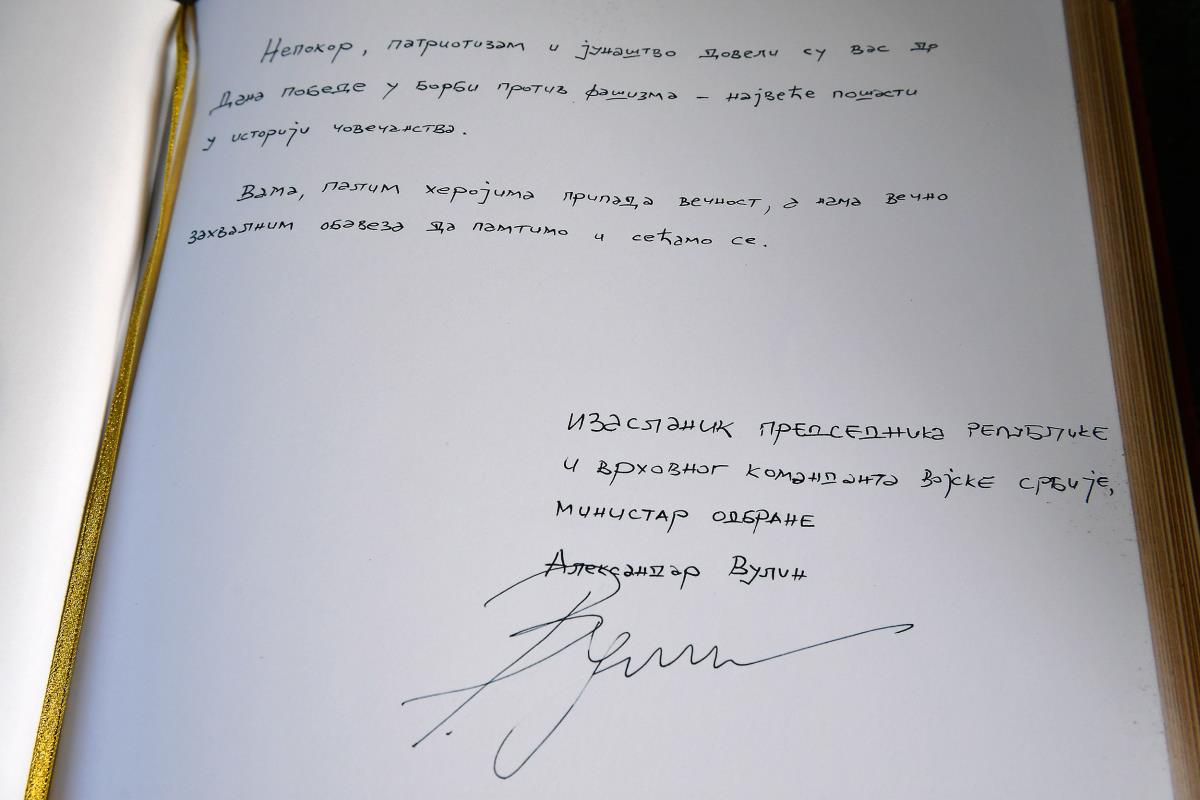 Непокор, патриотизам и јунаштво довели су вас др
Дана победе у борби против фашизма – највеће пошасти
у историји човечанства.
Вама, палим херојима припада вечност, а нама вечно
захвалним обавеза да памтимо и сећамо се.
ИЗАСЛАНИК ПРЕДСЕДНИКА РЕПУБЛИКЕ
И ВРХОВНОГ КОМАНДАНТА ВОЈСКЕ СРБИЈЕ,
МИНИСТАР ОДБРАНЕ
Александар Вулин